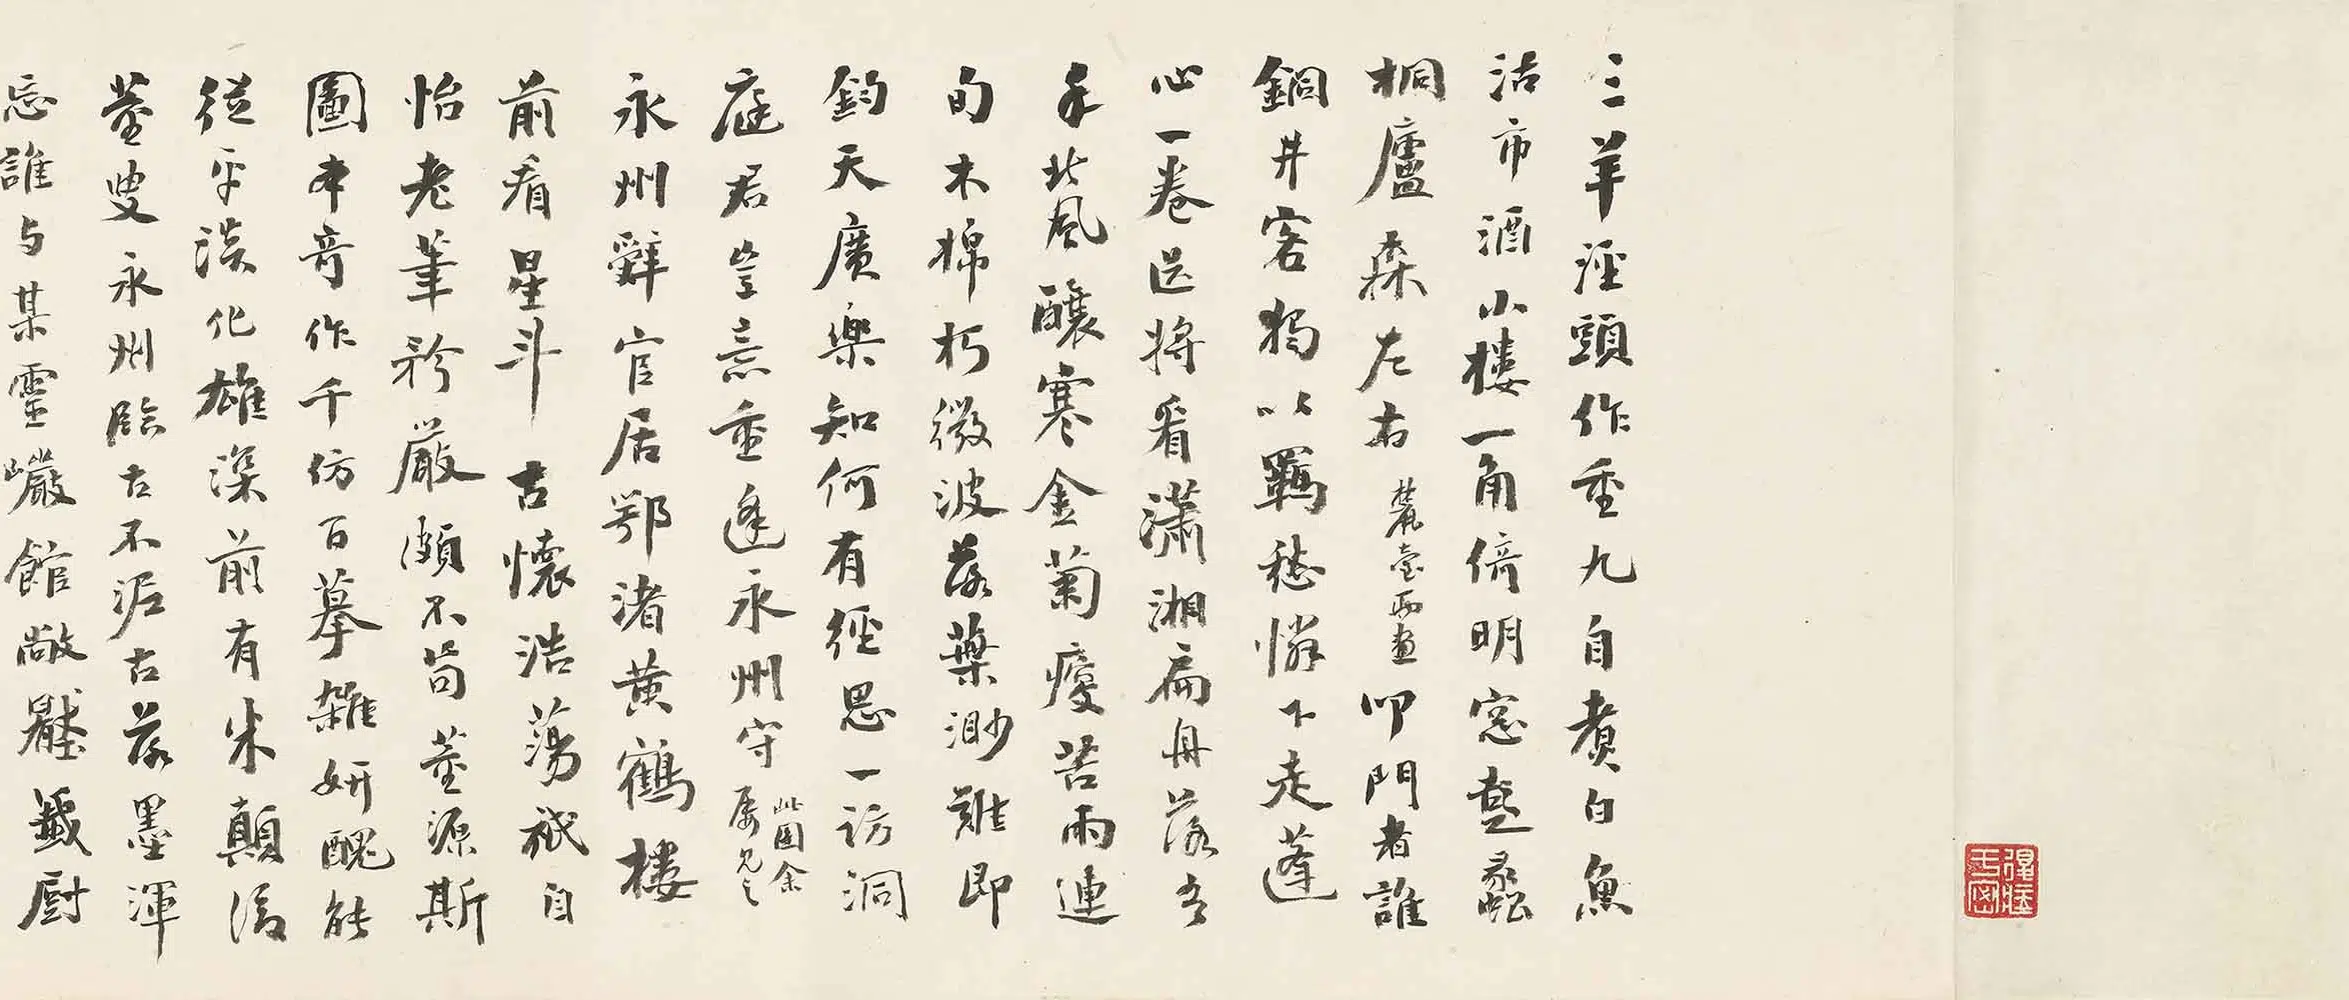 三羊淫頭作重九自煮白魚
沽市酒小樓一角倚明窗畫蠡
桐廬森左右麓臺兩畫叩門者誰
銅井客獨以羈愁憐下走蓬
心一卷邑將看瀟湘扁舟落吾
手北風釀寒金菊瘦苦雨連
旬木棉朽微波落葉渺難即
鈞天廣樂知何有經思一訪洞
庭君豈意重逢永州守此圖余屬兄之
永州辭官居鄂渚黃鶴樓
前看星斗古懷浩蕩祇自
怡老筆矜嚴頗不苟董源斯
圖本奇作千仿百摹雜妍醜能
從平淡化雄深前有朱顛後
董叟永州臨古不泥古落墨渾
忘誰與某靈巖館敞懸籤廚